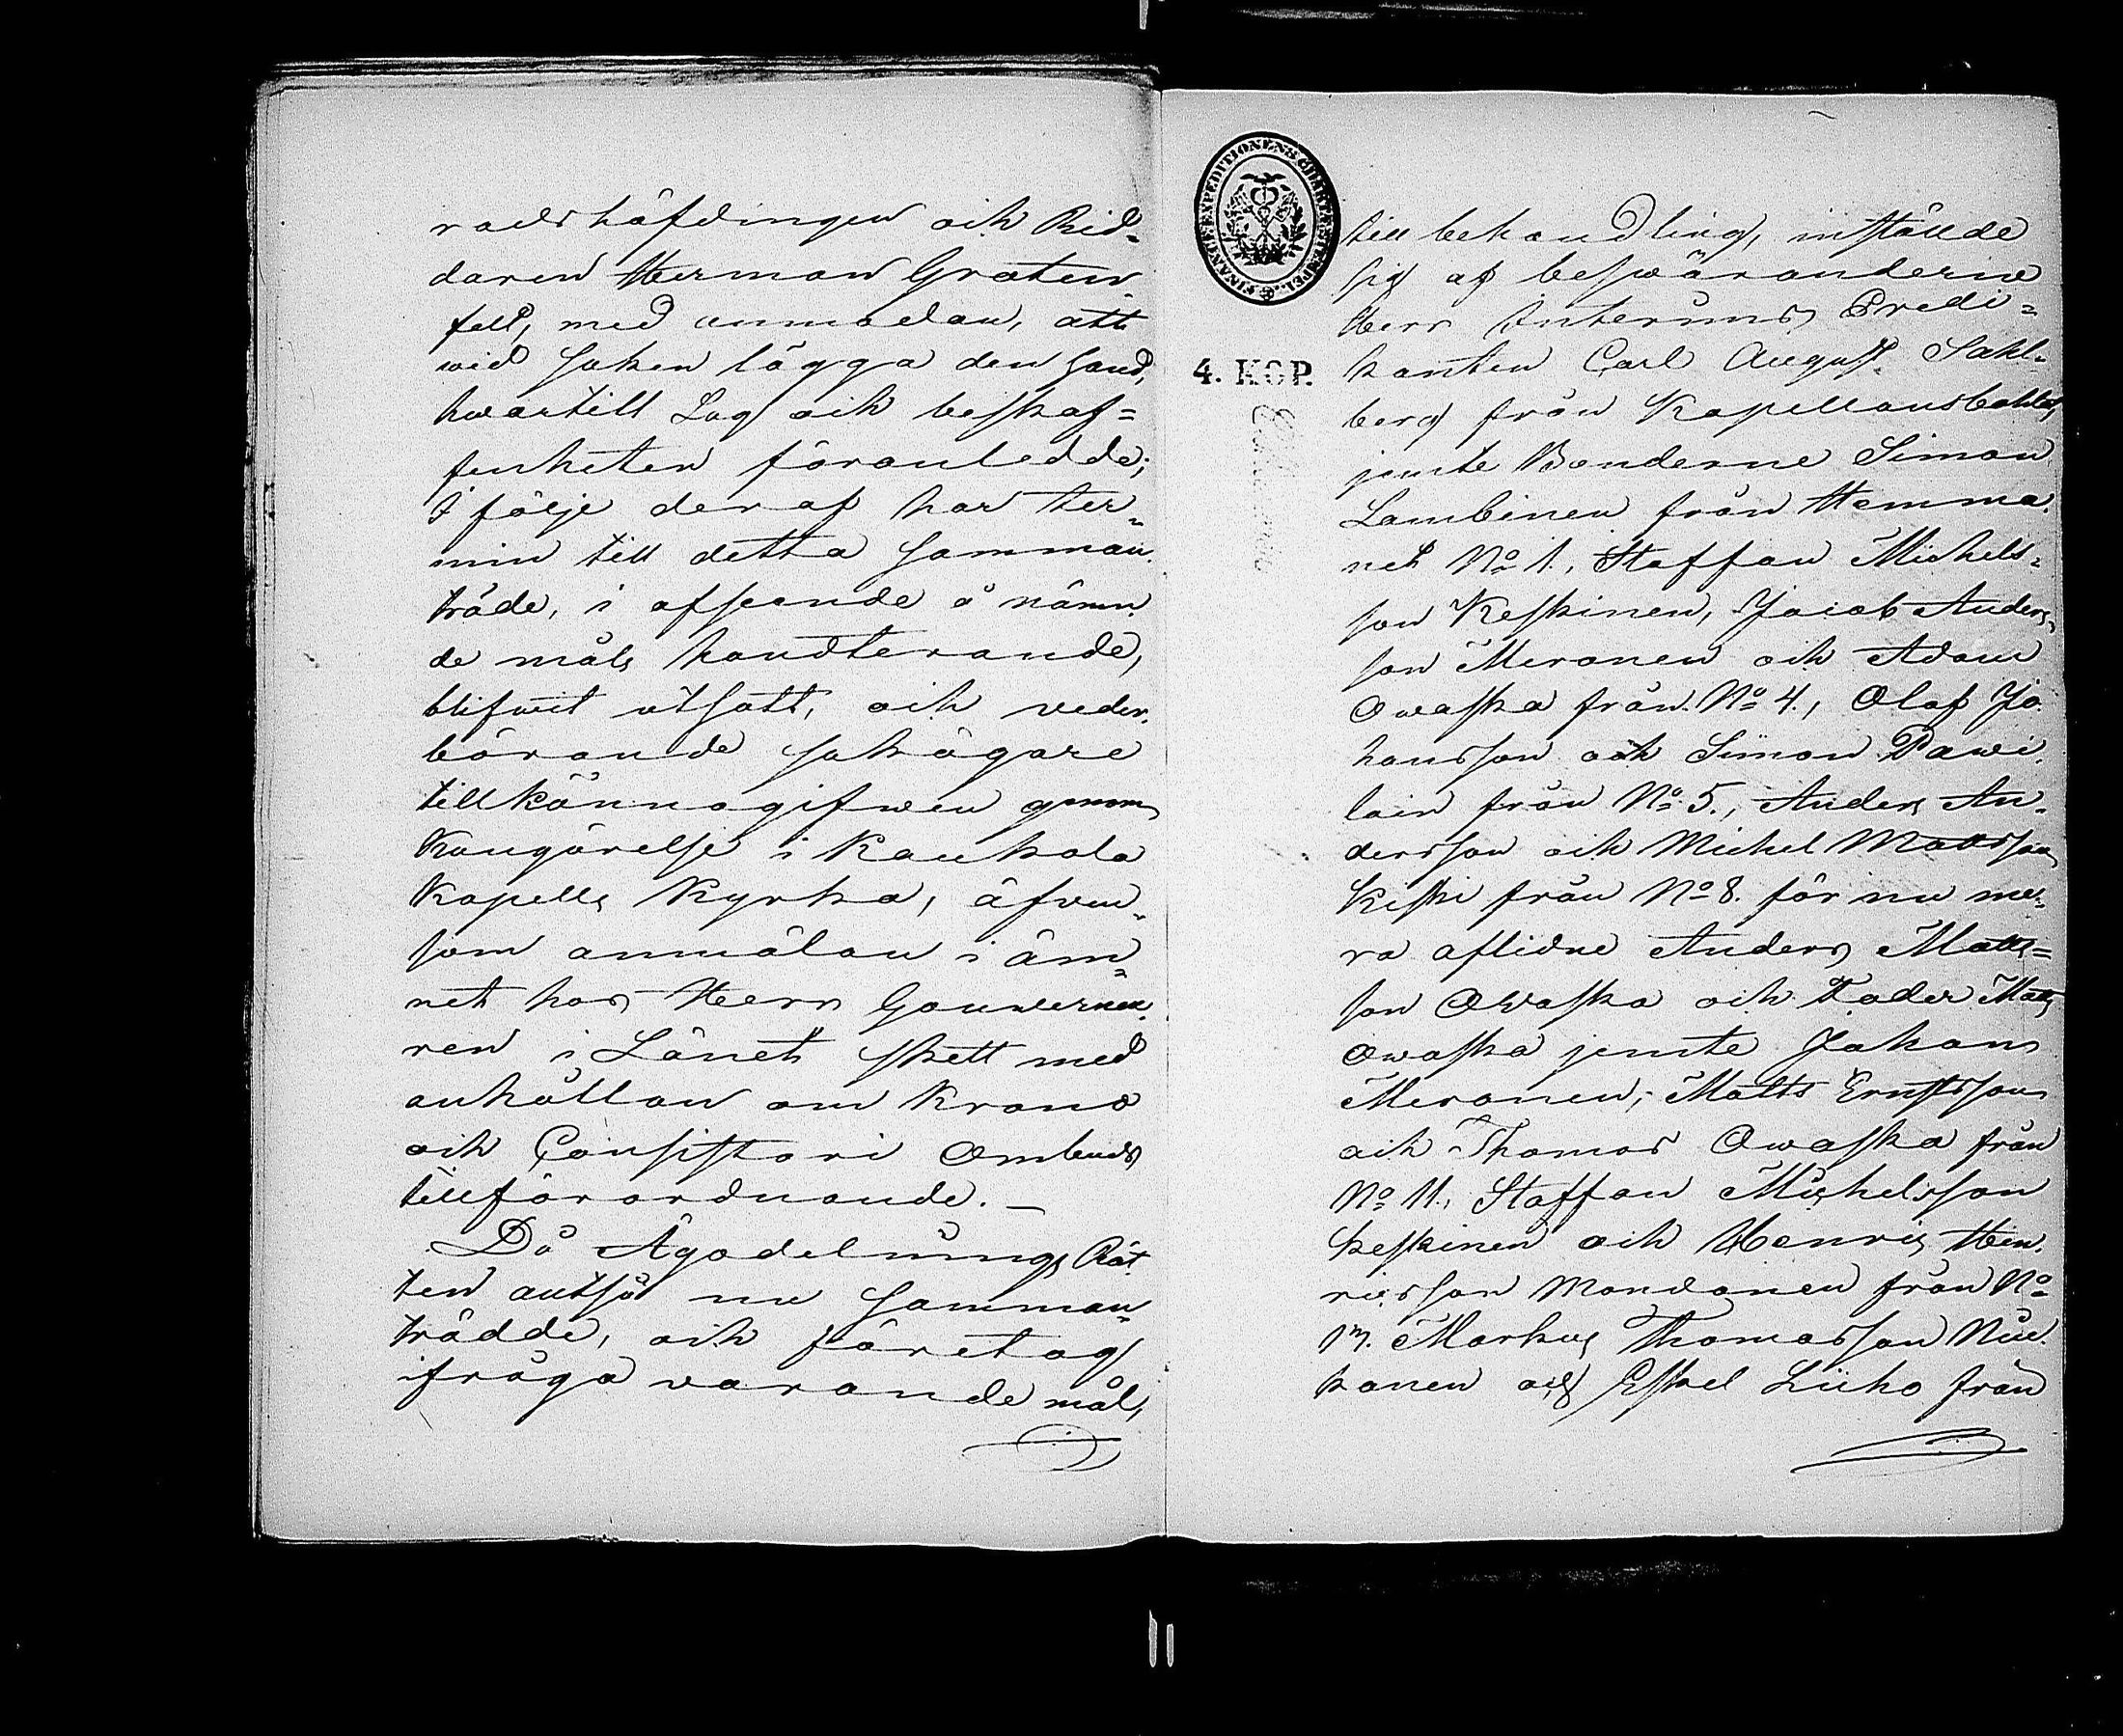 radshöfdingen och Rid-
daren Herman Groten-
felt, med anmodan, att
wid saken lägga den hand,
hwartill Lag och beskaf=
fenheten föranledde;
I följe deraf har ter-
min till detta samman-
träde, i afseende å nämn-
de måls handterande,
blifwit utsatt, och veder-
börande sakägare
tillkännagifwen genom
Kungörelse i Kaukola
Kapells Kyrka, äfven-
som anmälan i äm-
net hos Herr Gouverneu-
ren i Länet skett med
anhållan om Krono
och Consistorii Ombuds
tillförordnande. —
Då Ägodelnings Rät-
ten altså nu samman-
trädde, och företog
ifråga varande mål,
FINANCE-EXPEDITIONENS CHARTÆ STEMPEL.
4. KOP.
till behandling, inställde
sig af beswäranderne
Herr Interims Predi-
kanten Carl August Sahl-
berg från Kapellansbohlet,
jemte Bönderne Simon
Lambinen från Hemma-
net No 1., Staffan Michels-
son Keskinen, Jacob Anders-
son Meronen och Adam
Owaska från No 4., Olof Jo-
hansson och Simon Pawi-
lain från No 5., Anders An-
dersson och Michel Mattsson
Kiski från No 8. för nu me-
ra aflidne Anders Matts=
son Owaska och Fader Matts
Owaska jemte Johan
Meronen, Matts Ernstsson
och Thomas Owaska från
No 11., Staffan Michelsson
Keskinen och Henric Hen-
ricsson Mondonen från No
13. Markus Thomasson Niu-
kanen och Eskel Liiho från